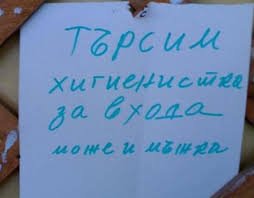 ТЪРСИМ
хигиенистка
за входа
може и мъжка